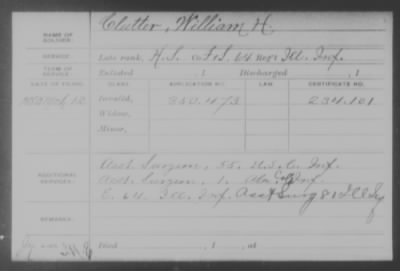 NAME OF SOLDIER: Clutter, William H.
SERVICE: Late rank, H.S. Co. F&S, 64 Reg't Ill. Inf.
TERM OF SERVICE: Enlisted , 1 Discharged , 1
DATE OF FILING. CLASS. APPLICATION NO. LAW. CERTIFICATE NO.
Invalid, 350.473 234.101
Widow,
Minor,
ADDITIONAL SERVICES: Asst. Surgeon, 55. U.S.C. Inf.
Asst. Surgeon, 1. Inf.
E. 64. Ill. Inf. Asst Surg 81 Ill Inf
REMARKS:
Died , 1 , at